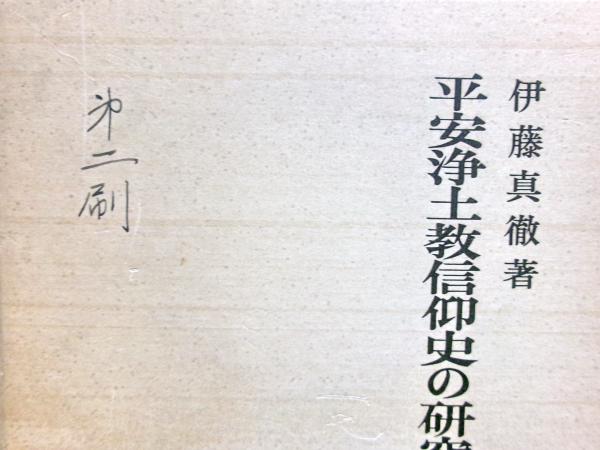 伊藤真徹著
平安浄土教信仰史の研究
第二刷